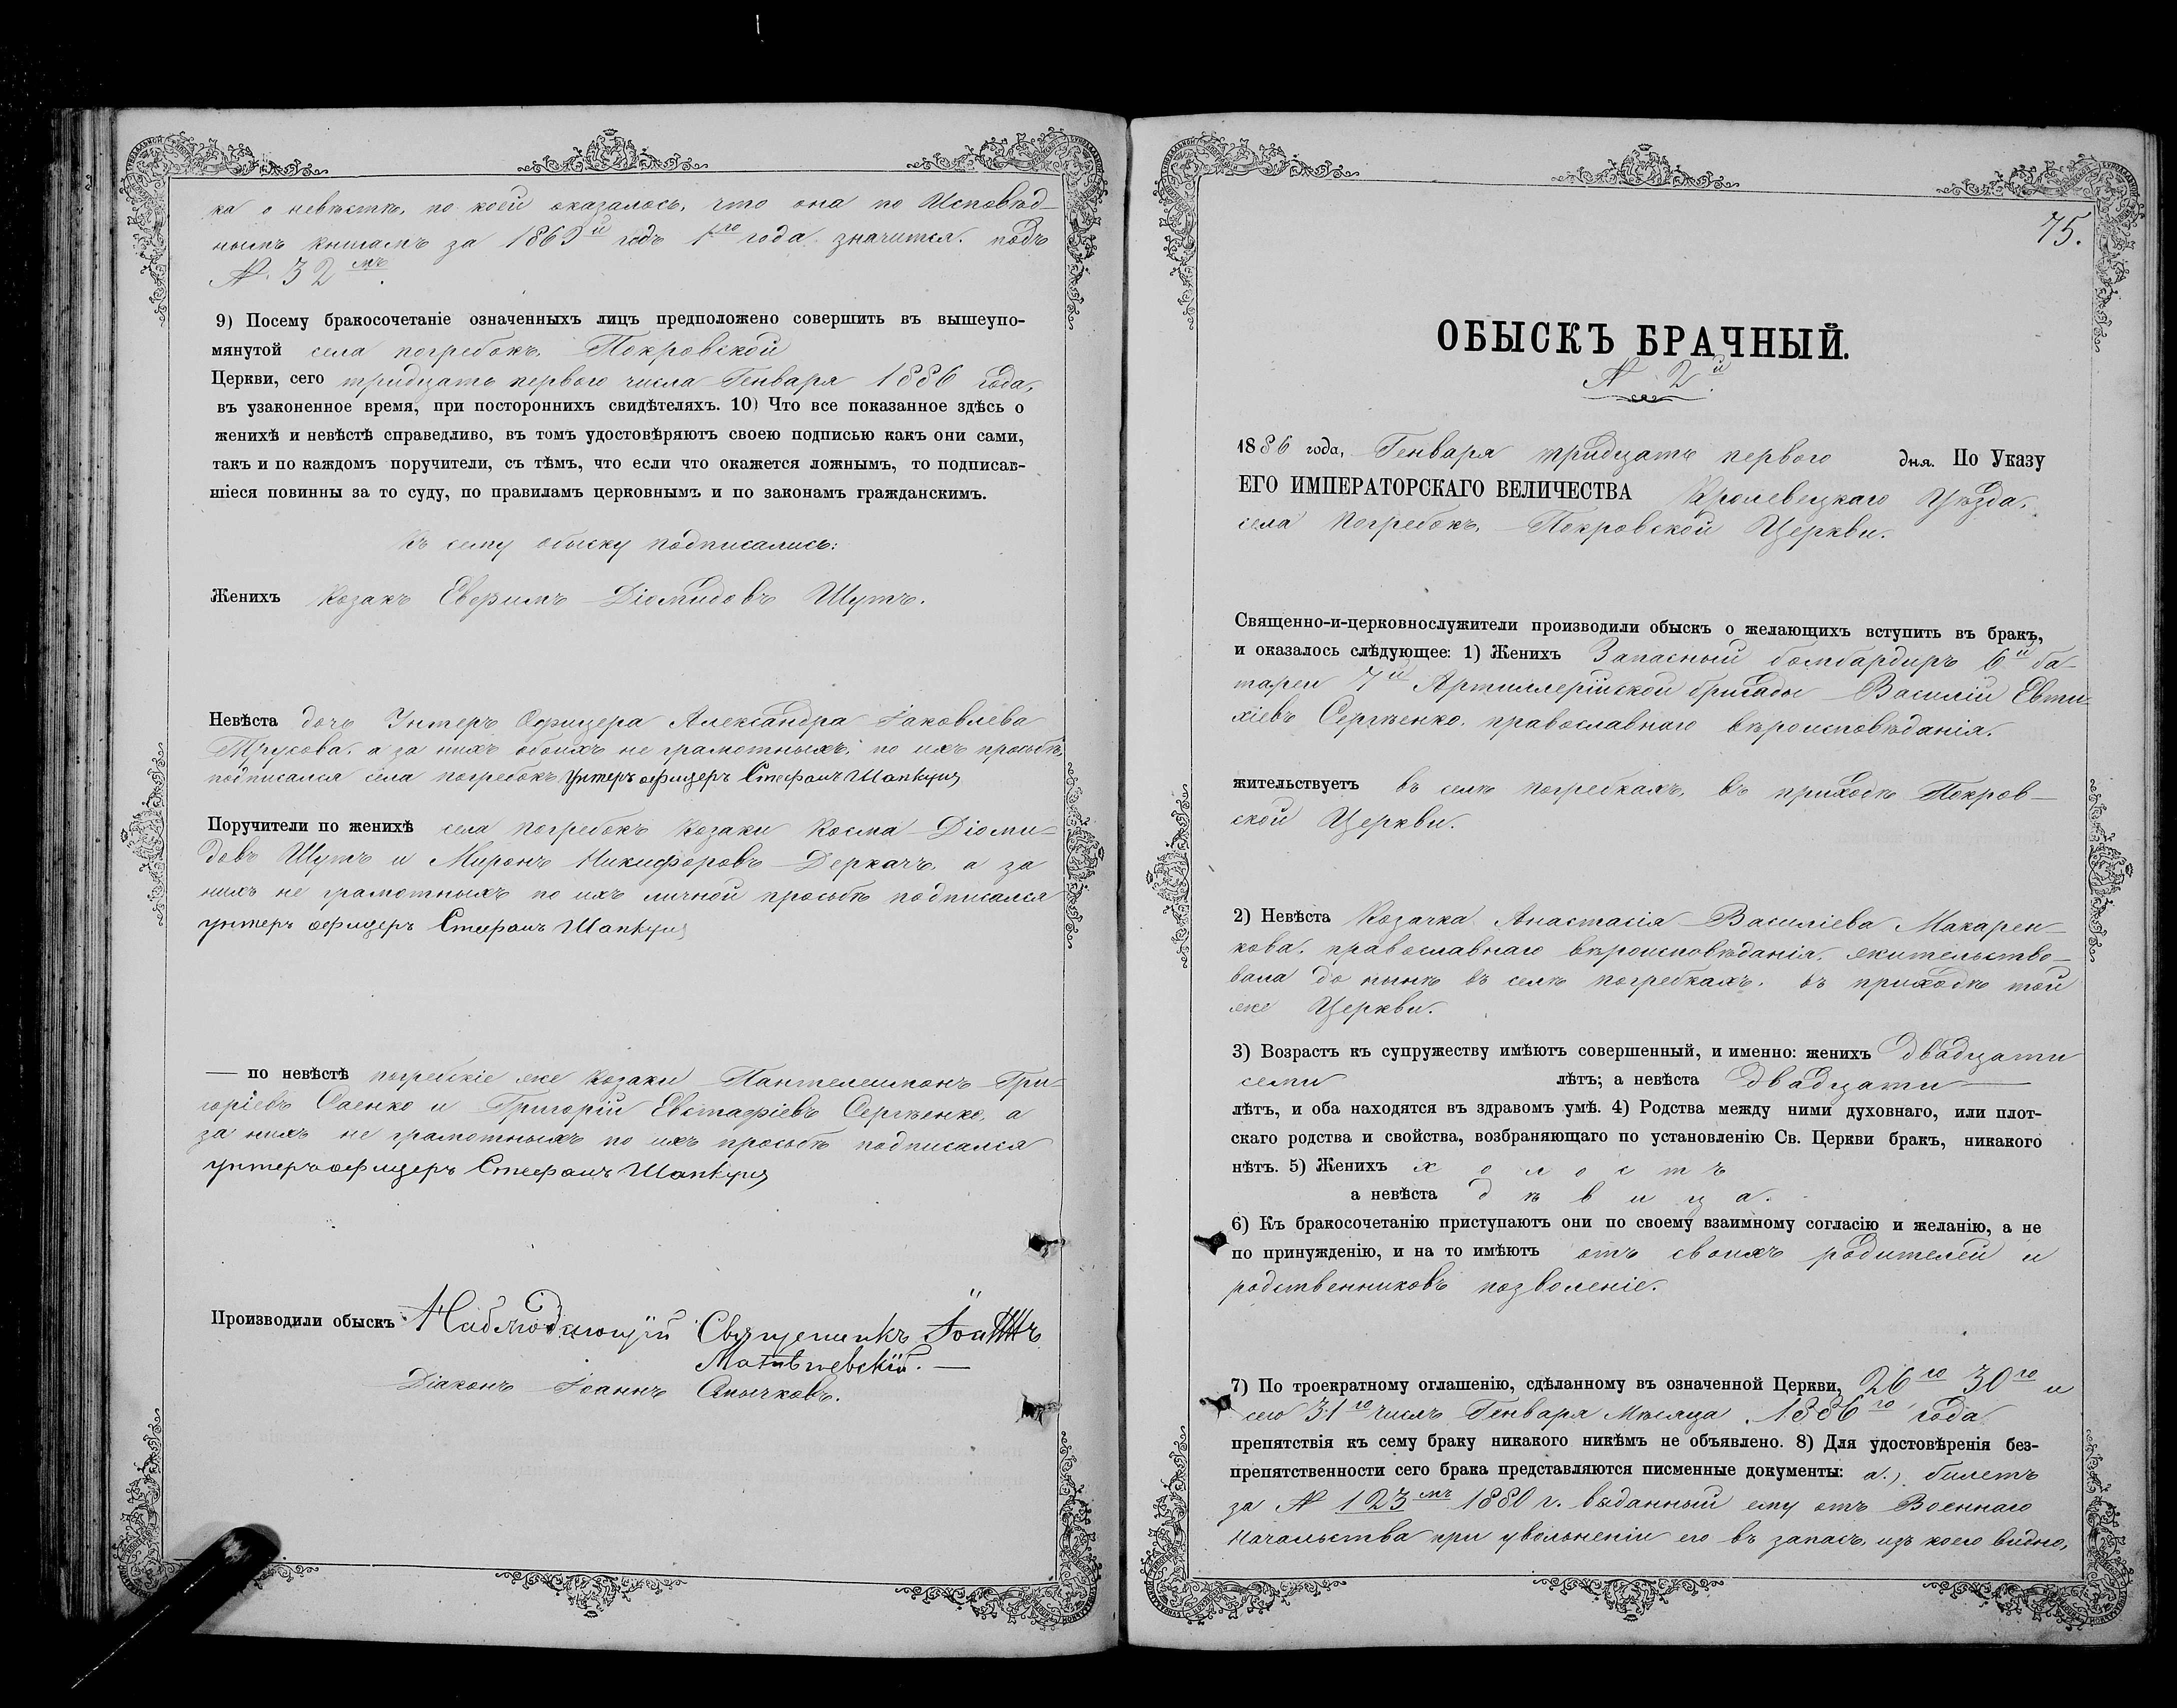 ка о невѣстѣ, по коей оказалось, что она по Исповѣд-
нымъ книгамъ за 1869й годъ 1го года значится подъ
№ 32мъ.
9) Посему бракосочетаніе означенныхъ лицъ предположено совершить въ вышеупо-
мянутой села Погребокъ, Покровской
Церкви, сего тридцать перваго числа Генваря 1886 года,
въ узаконенное время, при постороннихъ свидѣтеляхъ. 10) Что все показанное здѣсь о
женихѣ и невѣстѣ справедливо, въ томъ удостовѣряютъ своею подписью какъ они сами,
такъ и по каждомъ поручители, съ тѣмъ, что если что окажется ложнымъ, то подписав-
шіеся повинны за то суду, по правиламъ церковнымъ и по законамъ гражданскимъ.
Къ сему обыску подписались:
Женихъ Козакъ Евфимъ Діомидовъ Шутъ.
Невѣста дочь Унтеръ Офицера Александра Іаковлева
Трусова, а за нихъ обоихъ не грамотныхъ, по ихъ просьбѣ,
подписался села Погребокъ унтеръ офицеръ Стефанъ Шапкун
Поручители по женихѣ села Погребокъ Козаки Косма Діоми-
довъ Шутъ и Миронъ Никифоровъ Деркачъ, а за
нихъ не грамотныхъ по ихъ личной просьбѣ подписался
унтеръ офицеръ Стефанъ Шапкун
— по невѣстѣ погребскіе же Козаки Пантелеимонъ Гри-
горіевъ Саенко и Григорій Евстафіевъ Сергѣенко, а
за нихъ не грамотныхъ по ихъ просьбѣ подписался
унтеръ офицеръ Стефанъ Шапкун
Производили обыскъ Наблюдающій Священникъ Іоаннъ
Матвѣевскій. —
Діаконъ Іоаннъ Смычковъ.
75.
ОБЫСКЪ БРАЧНЫЙ.
№ 2й.
1886 года, Генваря тридцать перваго дня. По Указу
ЕГО ИМПЕРАТОРСКАГО ВЕЛИЧЕСТВА Кролевецкаго Уѣзда,
села Погребокъ, Покровской Церкви.
Священно-и-церковнослужители производили обыскъ о желающихъ вступить въ бракъ,
и оказалось слѣдующее: 1) Женихъ Запасный бомбардиръ 6й ба-
тареи 7й Артиллерійской бригады Василій Евти-
хіевъ Сергѣенко, православнаго вѣроисповѣданія.
жительствуетъ въ селѣ Погребкахъ, въ приходѣ Покров-
ской Церкви.
2) Невѣста Козачка Анастасія Василіева Макарен-
кова, православнаго вѣроисповѣданія, жительство-
вала до нынѣ въ селѣ Погребкахъ, въ приходѣ той
же Церкви.
3) Возрастъ къ супружеству имѣютъ совершенный, и именно: женихъ двадцати
семи лѣтъ; а невѣста двадцати —
лѣтъ, и оба находятся въ здравомъ умѣ. 4) Родства между ними духовнаго, или плот-
скаго родства и свойства, возбраняющаго по установленію Св. Церкви бракъ, никакого
нѣтъ. 5) Женихъ холостъ
а невѣста дѣвица.
6) Къ бракосочетанію приступаютъ они по своему взаимному согласію и желанію, а не
по принужденію, и на то имѣютъ отъ своихъ родителей и
родственниковъ позволеніе.
7) По троекратному оглашенію, сдѣланному въ означенной Церкви, 26го 30го и
сего 31го числъ Генваря Мѣсяца 1886го года
препятствія къ сему браку никакого никѣмъ не объявлено. 8) Для удостовѣренія без-
препятственности сего брака представляются писменные документы: а.) билетъ
за № 123мъ 1880 г. выданный ему отъ Военнаго
Начальства при увольненіи его въ запасъ, изъ коего видно,